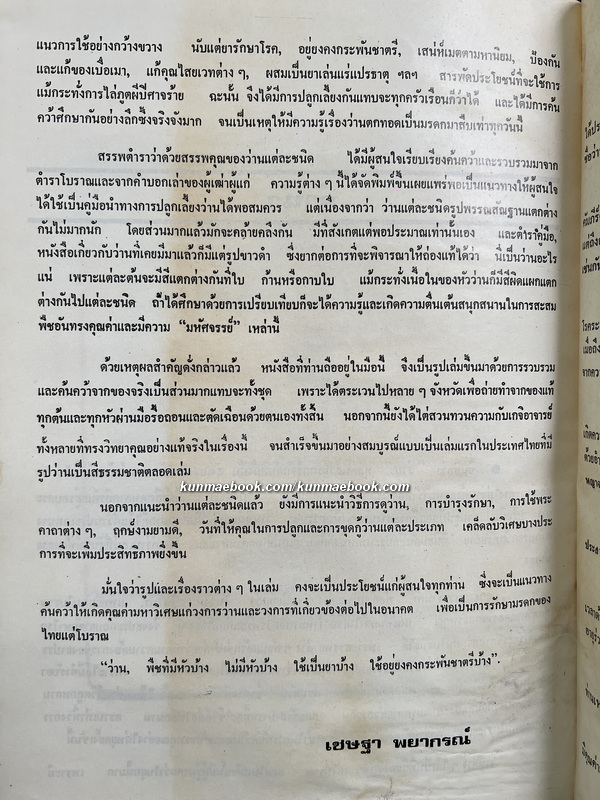 แนวการใช้อย่างกว้างขวาง นับแต่ยารักษาโรค, อยู่ยงคงกระพันชาตรี, เสน่ห์เมตตามหานิยม, ป้องกัน
และแก้ของเบื่อเมา, แก้คุณไสยเวทต่าง ๆ, ผสมเป็นยาเล่นแร่แปรธาตุ ฯลฯ สารพัดประโยชน์ที่จะใช้การ
แม้กระทั่งการไล่ภูตผีปีศาจร้าย ฉะนั้น จึงได้มีการปลูกเลี้ยงกันแทบจะทุกครัวเรือนก็ว่าได้ และได้มีการค้น
คว้าศึกษากันอย่างลึกซึ้งจริงจังมาก จนเป็นเหตุให้มีความรู้เรื่องว่านตกทอดเป็นมรดกมาสืบเท่าทุกวันนี้
สรรพตำราว่าด้วยสรรพคุณของว่านแต่ละชนิด ได้มีผู้สนใจเรียบเรียงค้นคว้าและรวบรวมมาจาก
ตำราโบราณและจากคำบอกเล่าของผู้เฒ่าผู้แก่ ความรู้ต่าง ๆ นี้ได้จัดพิมพ์ขึ้นเผยแพร่พอเป็นแนวทางให้ผู้สนใจ
ได้ใช้เป็นคู่มือนำทางการปลูกเลี้ยงว่านได้พอสมควร แต่เนื่องจากว่า ว่านแต่ละชนิดรูปพรรณสัณฐานแตกต่าง
กันไม่มากนัก โดยส่วนมากแล้วมักจะคล้ายคลึงกัน มีที่สังเกตแต่พอประมาณเท่านั้นเอง และตำราคู่มือ,
หนังสือเกี่ยวกับว่านที่เคยมีมาแล้วก็มีแต่รูปขาวดำ ซึ่งยากต่อการที่จะพิจารณาให้ถ่องแท้ได้ว่า นี่เป็นว่านอะไร
แน่ เพราะแต่ละต้นจะมีสีแตกต่างกันที่ใบ ก้านหรือกาบใบ แม้กระทั่งเนื้อในของหัวว่านก็มีสีผิดแผกแตก
ต่างกันไปแต่ละชนิด ถ้าได้ศึกษาด้วยการเปรียบเทียบก็จะได้ความรู้และเกิดความตื่นเต้นสนุกสนานในการสะสม
พืชอันทรงคุณค่าและมีความ "มหัศจรรย์" เหล่านี้
ด้วยเหตุผลสำคัญดังกล่าวแล้ว หนังสือที่ท่านถืออยู่ในมือนี้ จึงเป็นรูปเล่มขึ้นมาด้วยการรวบรวม
และค้นคว้าจากของจริงเป็นส่วนมากแทบจะทั้งชุด เพราะได้ตระเวนไปหลาย ๆ จังหวัดเพื่อถ่ายทำจากของแท้
ทุกต้นและทุกหัวผ่านมือรื้อถอนและตัดเฉือนด้วยตนเองทั้งสิ้น นอกจากนี้ยังได้ไต่สวนทวนความกับเกจิอาจารย์
ทั้งหลายที่ทรงวิทยาคุณอย่างแท้จริงในเรื่องนี้ จนสำเร็จขึ้นมาอย่างสมบูรณ์แบบเป็นเล่มแรกในประเทศไทยที่มี
รูปว่านเป็นสีธรรมชาติตลอดเล่ม
kunmaebook.com/kunmaebook.com
นอกจากแนะนำว่านแต่ละชนิดแล้ว ยังมีการแนะนำวิธีการดูว่าน, การบำรุงรักษา, การใช้พระ
คาถาต่าง ๆ, ฤกษ์งามยามดี, วันที่ให้คุณในการปลูกและการขุดกู้ว่านแต่ละประเภท เคล็ดลับวิเศษบางประ
การที่จะเพิ่มประสิทธิภาพยิ่งขึ้น
มั่นใจว่ารูปและเรื่องราวต่าง ๆ ในเล่ม คงจะเป็นประโยชน์แก่ผู้สนใจทุกท่าน ซึ่งจะเป็นแนวทาง
ค้นคว้าให้เกิดคุณค่ามหาวิเศษแก่วงการว่านและวงการที่เกี่ยวข้องต่อไปในอนาคต เพื่อเป็นการรักษามรดกของ
ไทยแต่โบราณ
"ว่าน, พืชที่มีหัวบ้าง ไม่มีหัวบ้าง ใช้เป็นยาบ้าง ใช้อยู่ยงคงกระพันชาตรีบ้าง".
เชษฐา พยากรณ์